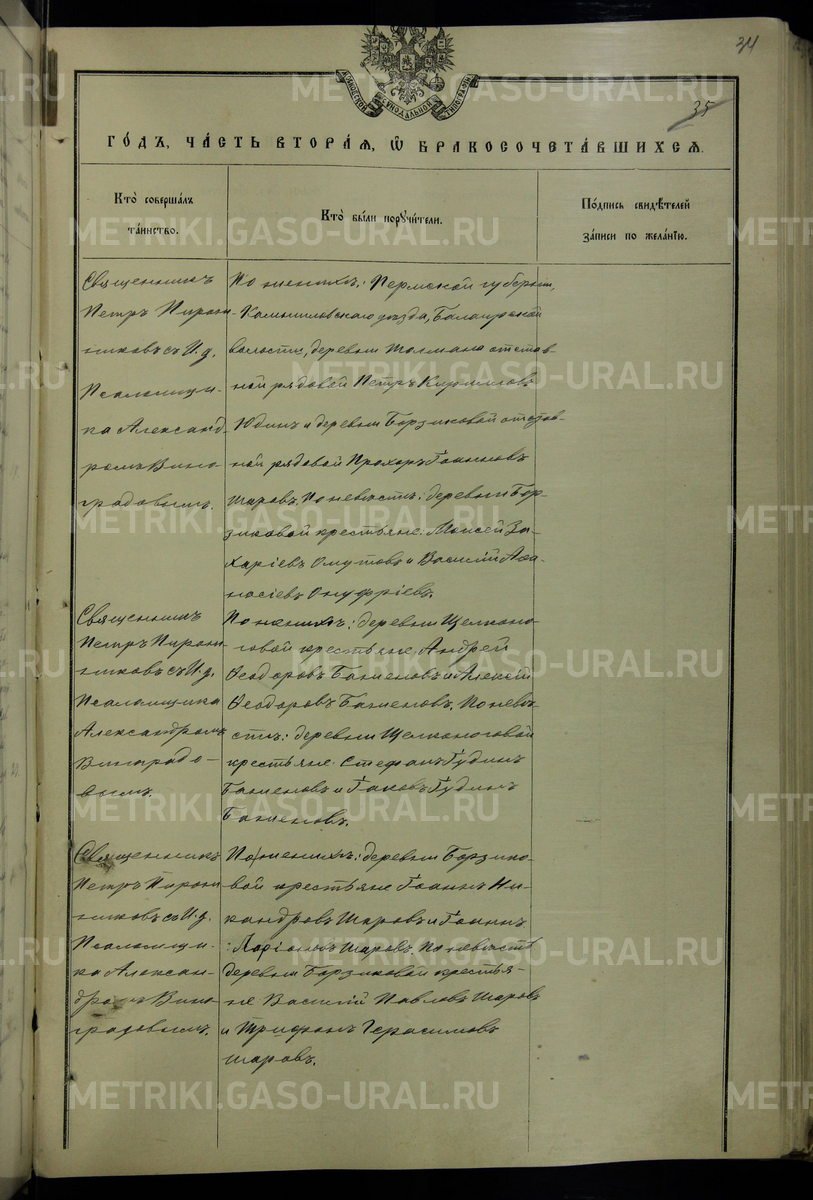 34
35
МОСКОВСКОЙ СѴНОДАЛЬНОЙ ТИПОГРАФІИ
ГОДЪ, ЧАСТЬ ВТОРАЯ, Ѿ БРАКОСОЧЕТАВШИХСЯ.
Кто совершалъ
таинство.
Кто были поручители.
Подпись свидѣтелей
записи по желанію.
Священникъ
Петръ Пирож-
никовъ съ И.д.
Псаломщи-
ка Александ-
ромъ Вино-
градовымъ.
По женихѣ: Пермской губерніи,
Камышловскаго уѣзда, Балаирской
волости, деревни отстав-
ной рядовой Петръ Кирилловъ
Юдинъ и деревни Борзиковой отстав-
ной рядовой Прохоръ Іоанновъ
Шаровъ. По невѣстѣ: деревни Бор-
зиковой крестьяне: Моисей За-
харіевъ Омутовъ и Василій Аѳа-
насіевъ Онуфріевъ.
Священникъ
Петръ Пирож-
никовъ съ И.д.
Псаломщика
Александромъ
Виноградо-
вымъ.
По женихѣ: деревни Щелконо-
говой крестьяне Андрей
Ѳеодоровъ Баженовъ и Алексій
Ѳеодоровъ Баженовъ. По невѣ-
стѣ: деревни Щелконоговой
крестьяне Стефанъ Іудинъ
Баженовъ и Іаковъ Іудинъ
Баженовъ.
Священникъ
Петръ Пирож-
никовъ съ И.д.
Псаломщи-
ка Алексан-
дромъ Вино-
градовымъ.
По женихѣ: деревни Борзико-
вой крестьяне Іоаннъ Ни-
кандровъ Шаровъ и Іоаннъ
Шаровъ. По невѣстѣ
деревни Борзиковой крестья-
не Василій Павловъ Шаровъ
и Трифонъ Герасимовъ
Шаровъ.
METRIKI.GASO-URAL.RU